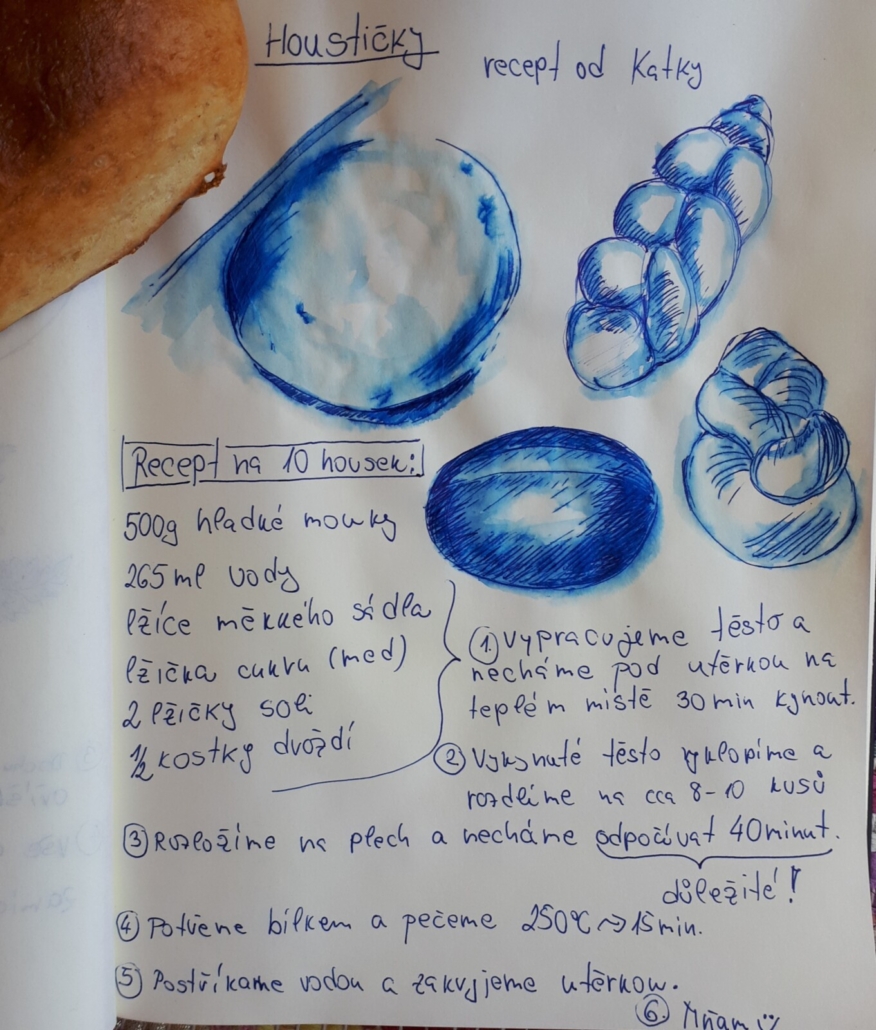 Houstičky
recept od Katky
Recept na 10 housek:
500g hladké mouky
265 ml vody
lžíce měkkého sádla
lžička cukru (med)
2 lžičky soli
1/2 kostky droždí
1. Vypracujeme těsto a
necháme pod utěrkou na
teplém místě 30 min kynout.
2 Vykynuté těsto vyklopíme a
rozdělíme na cca 8-10 kusů
3 Rozložíme na plech a necháme odpočívat 40 minut.
důležité!
4 Potřeme bílkem a pečeme 250°C ~> 15 min.
5 Postříkáme vodou a zakryjeme utěrkou.
6. Mňam